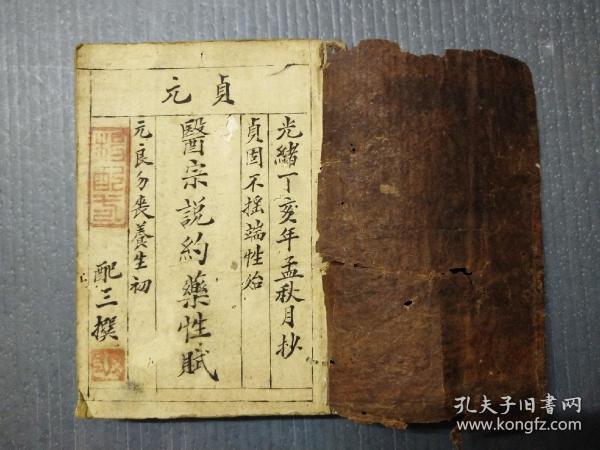 貞元
光緒丁亥年孟秋月抄
貞固不搖端性始
醫宗説約藥性賦
元良勿喪養生初
配三撰
孔夫子旧书网
www.kongfz.com